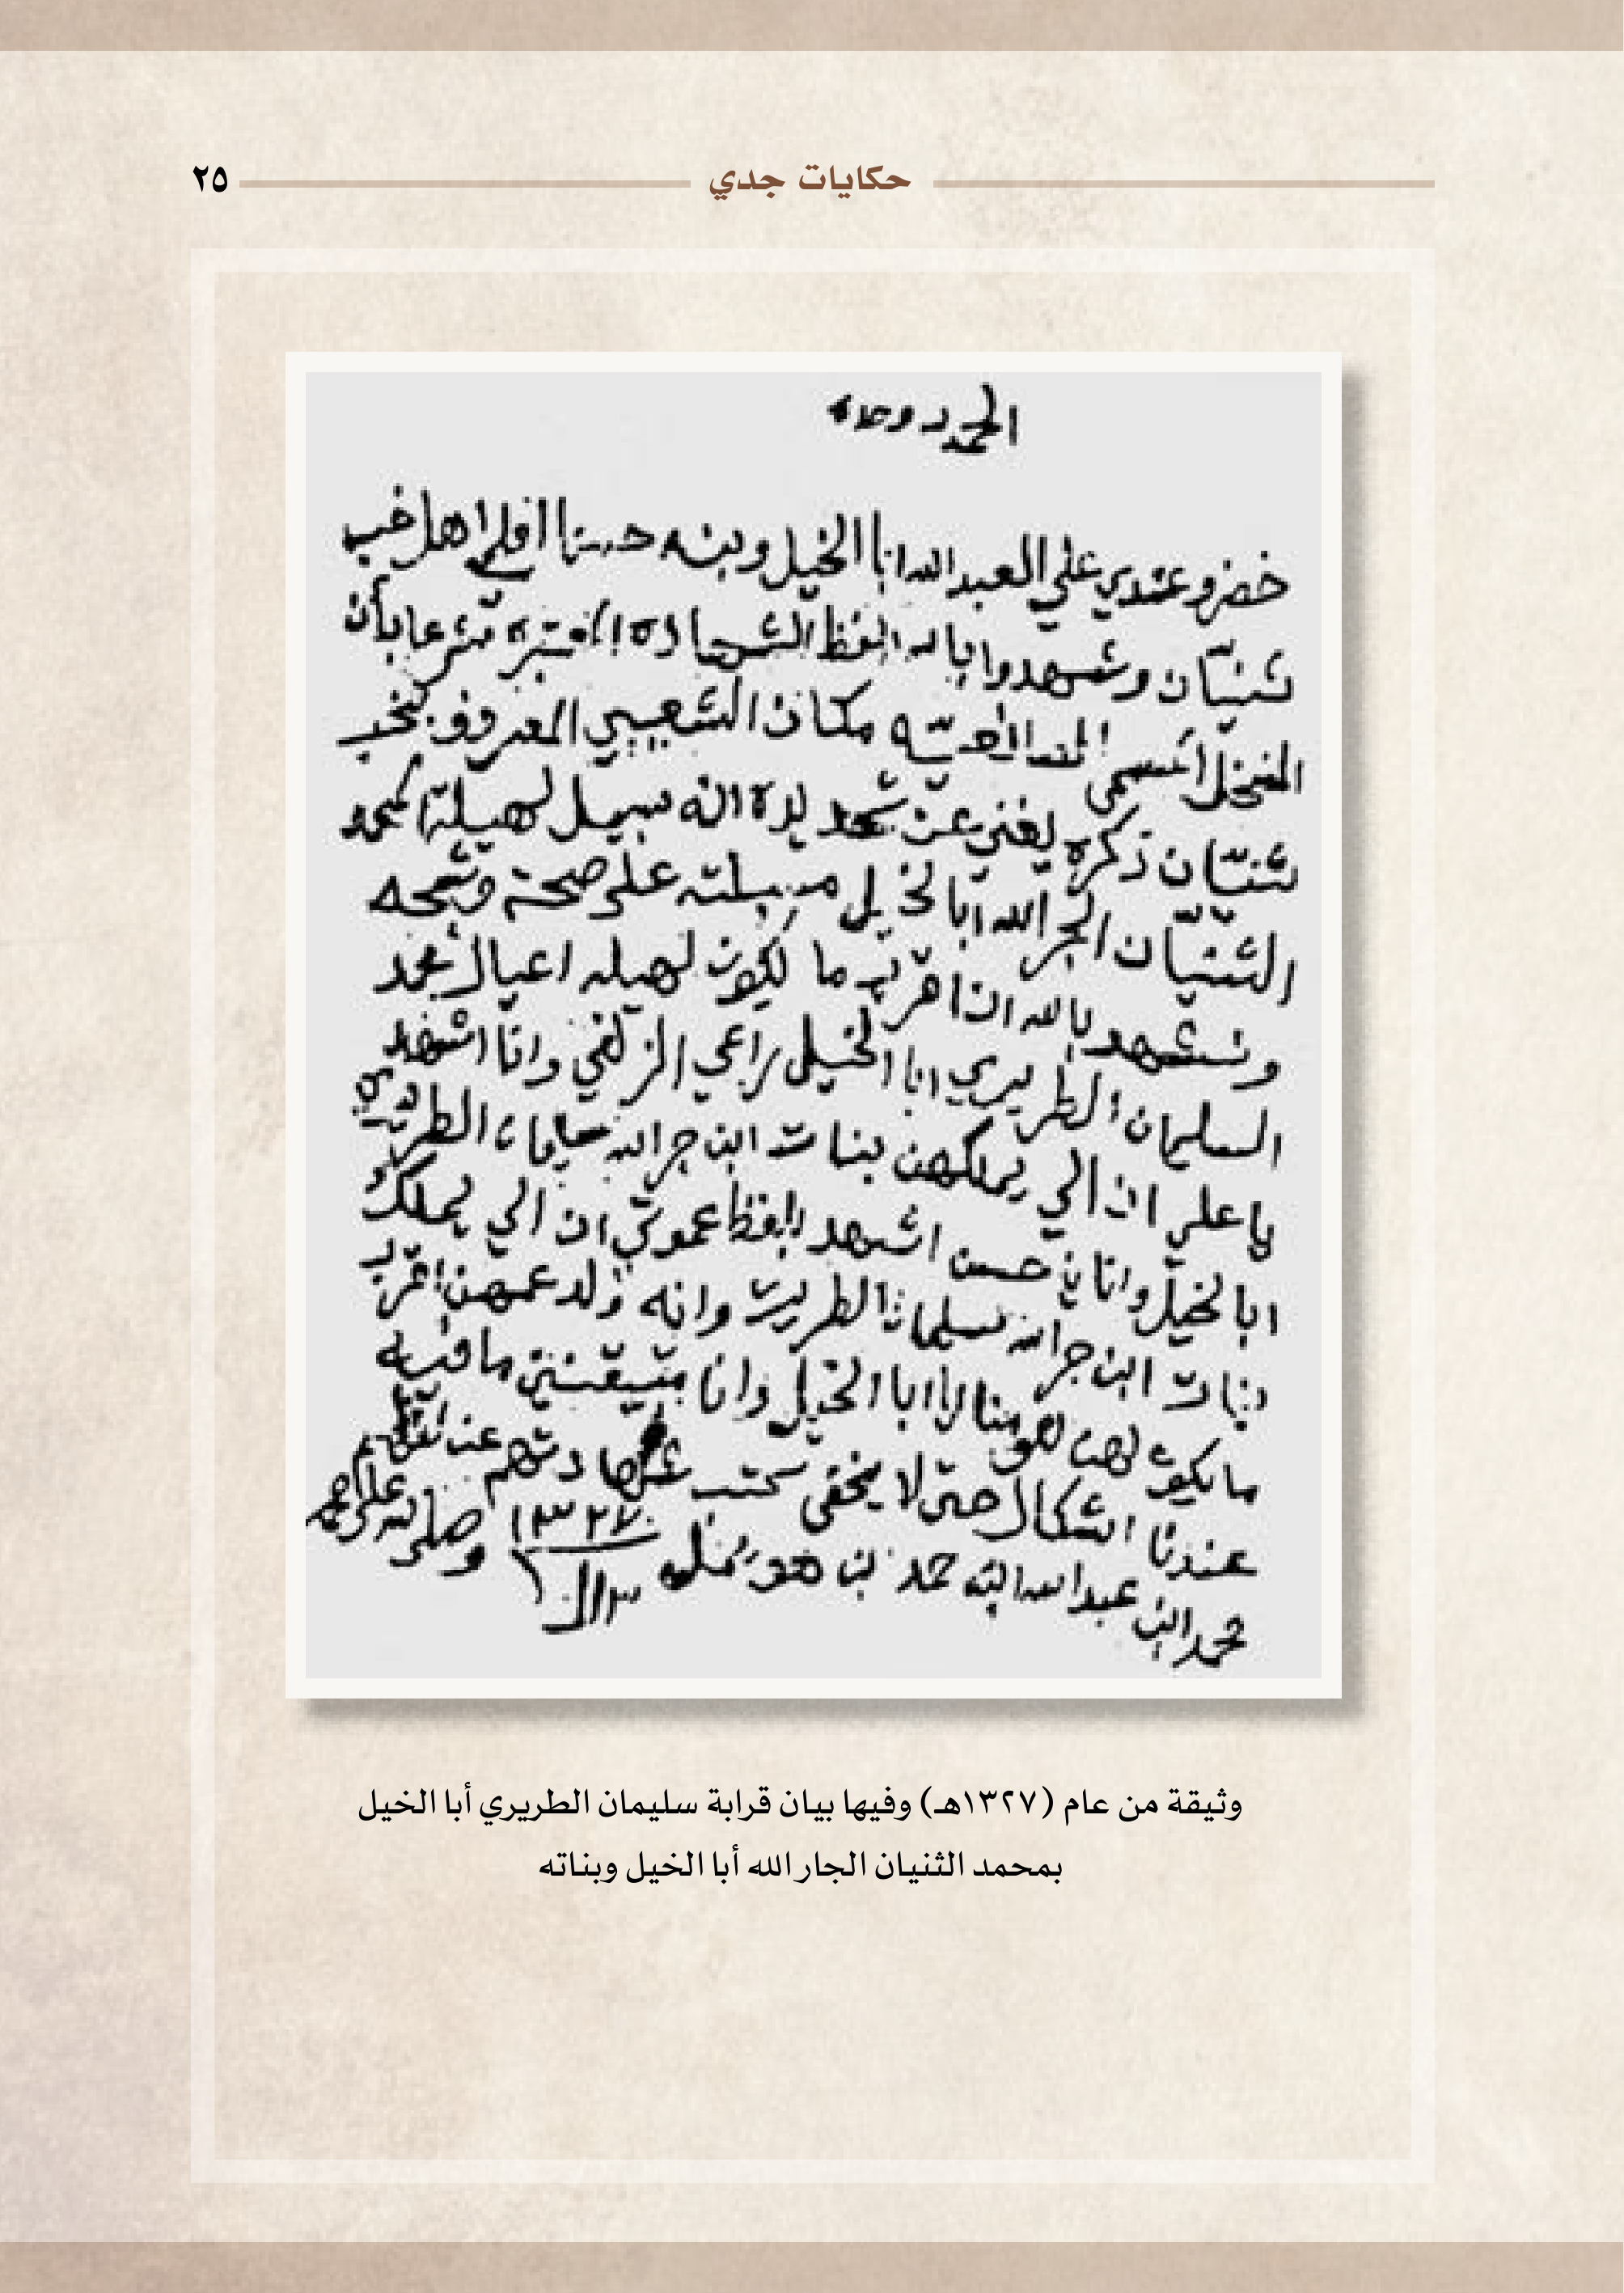 حكايات جدي ٢٥
الحمد لله وحده
حضرو عندي علي العبد الله ابا الخيل وبنه حسنا اهل خب
ثنيان وشهدوا بالله ابلفظ الشهاده المعتبره شرعا بأن
النخل المسمى مكان الشعيبي المعروف بخب
ثنيان ذكره يغني عن تحديده انه سبيل لهيلة المحمد
الثنيان الجر الله ابا الخيل مسبلته على صحة
ونشهد بالله ان اقرب ما يكون لهيله اعيال محمد
السليمان الطريري ابا الخيل راعي الزلفي وانا اشهد
يا علي ان الي يملكهن بنات ابن جر الله سليمان الطريري
ابا الخيل وانا يا حسن اشهد بلفظ ان الي يملك
بنات ابن جر الله سليمان الطريري وانه ولد عمهن اقرب
ما يكون لهن ابا الخيل وانا متيقنين ما فيه
عندنا اشكال حتى لا يخفى كتب شهادتهم عن
محمد ابن عبد الله ابن حمد بن ١٣٢٧ وصلى الله على محمد
وثيقة من عام (١٣٢٧هـ) وفيها بيان قرابة سليمان الطريري أبا الخيل
بمحمد الثنيان الجار الله أبا الخيل وبناته